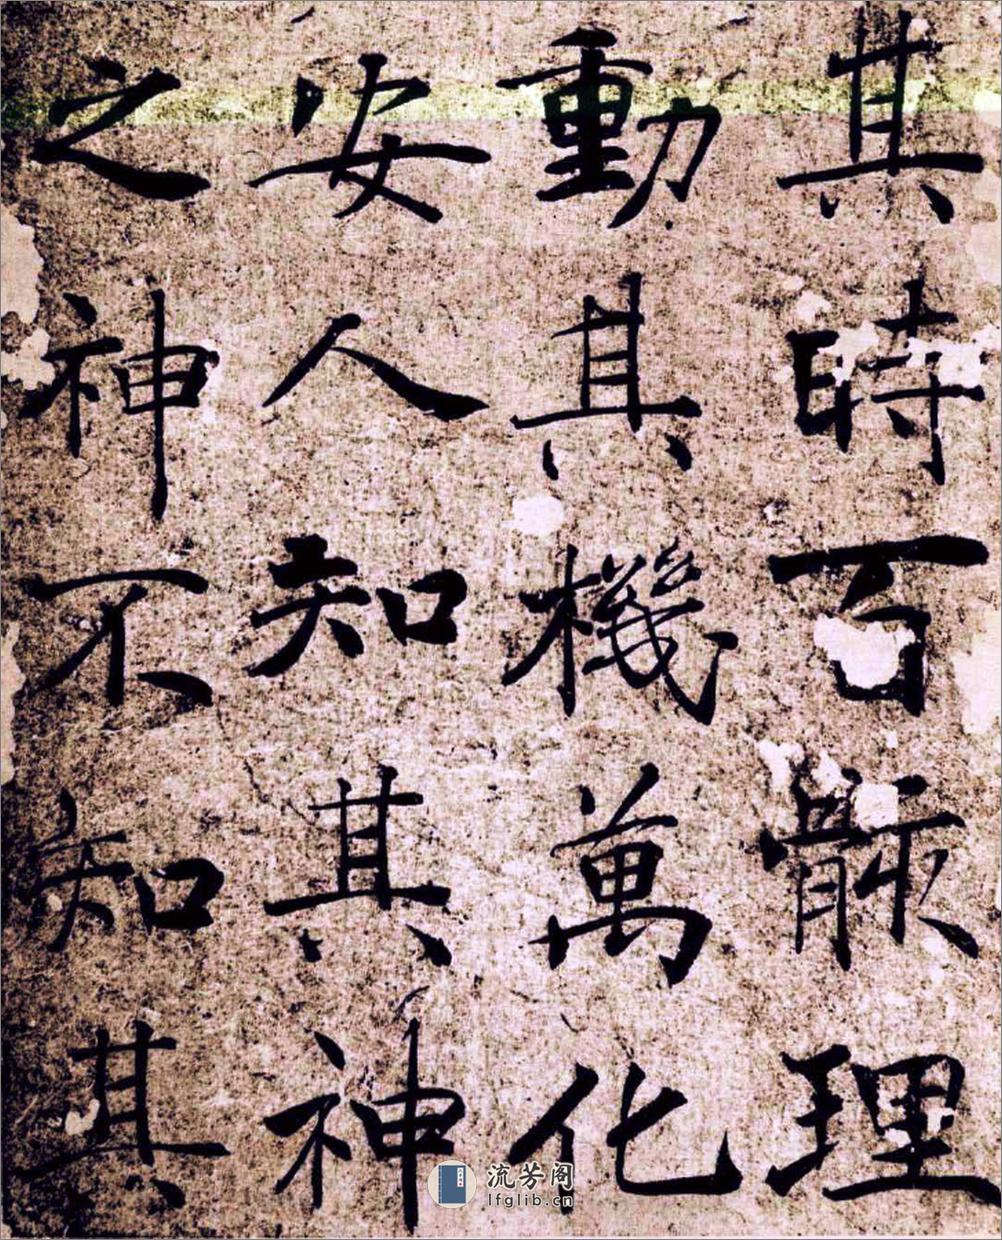 其時百骸理
動其機萬化
安人知其神
之神不知其
流芳阁
lfglib.cn